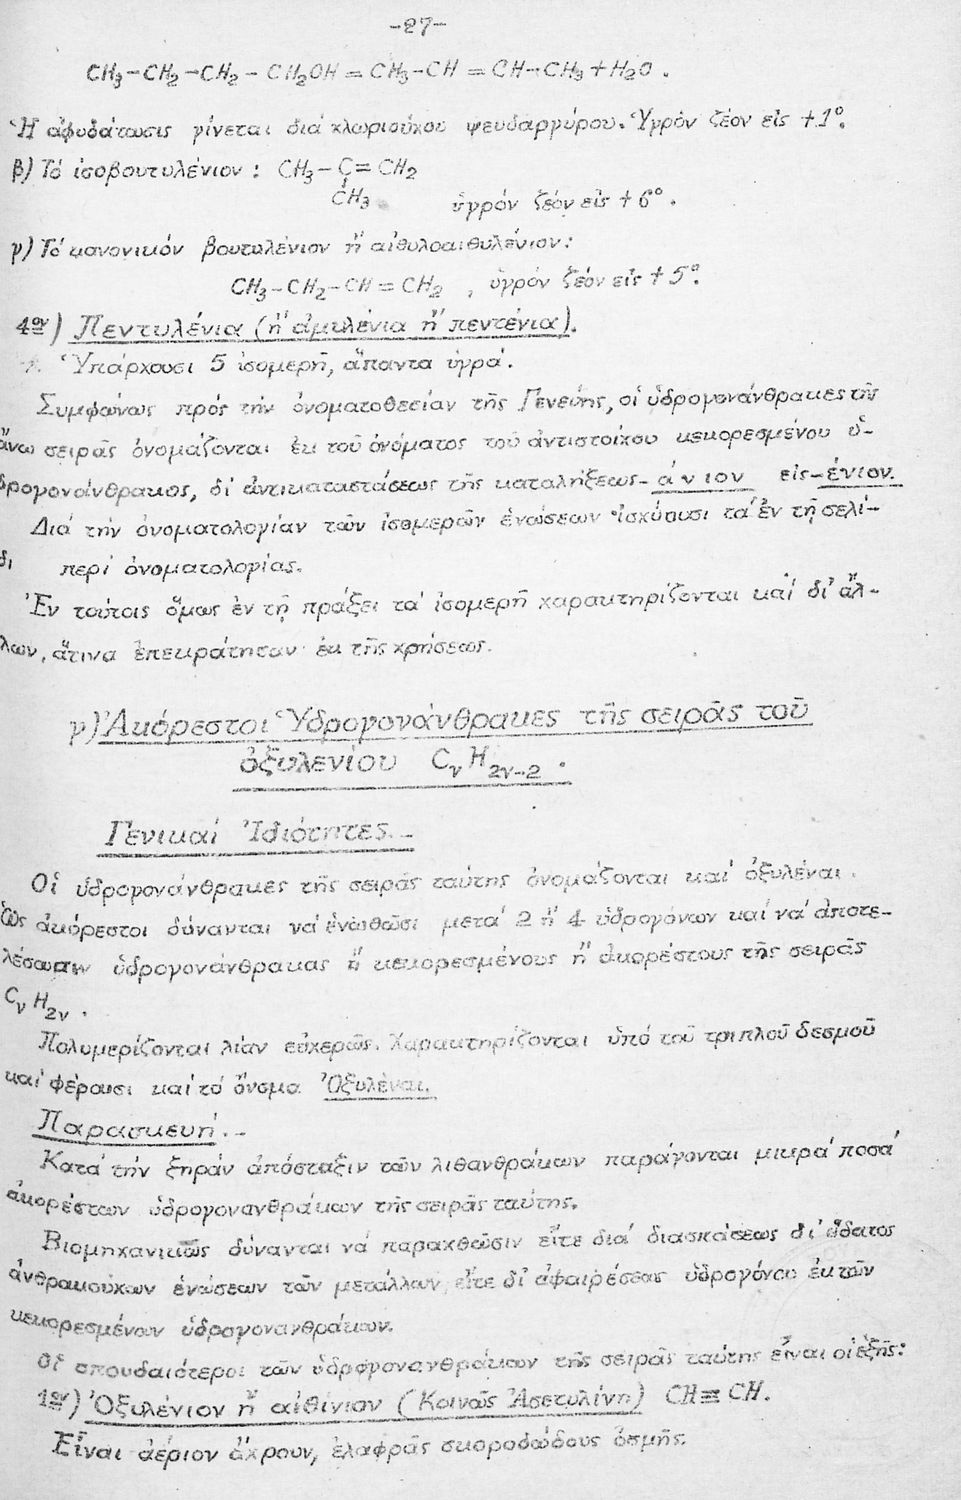 -27-
CH3-CH2-CH2-CH2OH = CH3-CH = CH-CH3 + H2O .
Ἡ ἀφυδάτωσις γίνεται διά χλωριούχου ψευδαργύρου. Ὑγρόν ζέον εἰς +1°.
β) Τό ἰσοβουτυλένιον : CH3 - C = CH2
CH3 ὑγρόν ζέον εἰς + 6° .
γ) Τό κανονικόν βουτυλένιον ἤ αἰθυλοαιθυλένιον:
CH3-CH2-CH = CH2 , ὑγρόν ζέον εἰς + 5°.
4ον) Πεντυλένια (ἤ ἀμυλένια ἤ πεντένια).
Ὑπάρχουσι 5 ἰσομερῆ, ἅπαντα ὑγρά.
Συμφώνως πρός τήν ὀνοματοθεσίαν τῆς Γενεύης, οἱ ὑδρογονάνθρακες τῆς
ἄνω σειρᾶς ὀνομάζονται ἐκ τοῦ ὀνόματος τοῦ ἀντιστοίχου κεκορεσμένου ὑ-
δρογονάνθρακος, δι' ἀντικαταστάσεως τῆς καταλήξεως -άνιον εἰς -ένιον.
Διά τήν ὀνοματολογίαν τῶν ἰσομερῶν ἑνώσεων ἰσχύουσι τά ἐν τῇ σελί-
δι περί ὀνοματολογίας.
Ἐν τούτοις ὅμως ἐν τῇ πράξει τά ἰσομερῆ χαρακτηρίζονται καί δι' ἄλ-
λων, ἅτινα ἐπεκράτησαν ἐκ τῆς χρήσεως.
γ) Ἀκόρεστοι Ὑδρογονάνθρακες τῆς σειρᾶς τοῦ
ὀξυλενίου CνH2ν-2 .
Γενικαί Ἰδιότητες.-
Οἱ ὑδρογονάνθρακες τῆς σειρᾶς ταύτης ὀνομάζονται καί ὀξυλέναι.
Ὡς ἀκόρεστοι δύνανται νά ἑνωθῶσι μετά 2 ἤ 4 ὑδρογόνων καί νά ἀποτε-
λέσωσιν ὑδρογονάνθρακας ἤ κεκορεσμένους ἤ ἀκορέστους τῆς σειρᾶς
CνH2ν .
Πολυμερίζονται λίαν εὐχερῶς. Χαρακτηρίζονται ὑπό τοῦ τριπλοῦ δεσμοῦ
καί φέρουσι καί τό ὄνομα Ὀξυλέναι.
Παρασκευή.-
Κατά τήν ξηράν ἀπόσταξιν τῶν λιθανθράκων παράγονται μικρά ποσά
ἀκορέστων ὑδρογονανθράκων τῆς σειρᾶς ταύτης.
Βιομηχανικῶς δύνανται νά παραχθῶσιν εἴτε διά διασπάσεως δι' ὕδατος
ἀνθρακούχων ἑνώσεων τῶν μετάλλων, εἴτε δι' ἀφαιρέσεως ὑδρογόνου ἐκ τῶν
κεκορεσμένων ὑδρογονανθράκων.
Οἱ σπουδαιότεροι τῶν ὑδρογονανθράκων τῆς σειρᾶς ταύτης εἶναι οἱ ἑξῆς:
1ον) Ὀξυλένιον ἤ αἰθίνιον (Κοινῶς Ἀσετυλίνη) CH≡CH.
Εἶναι ἀέριον ἄχρουν, ἐλαφρᾶς σκοροδώδους ὀσμῆς.